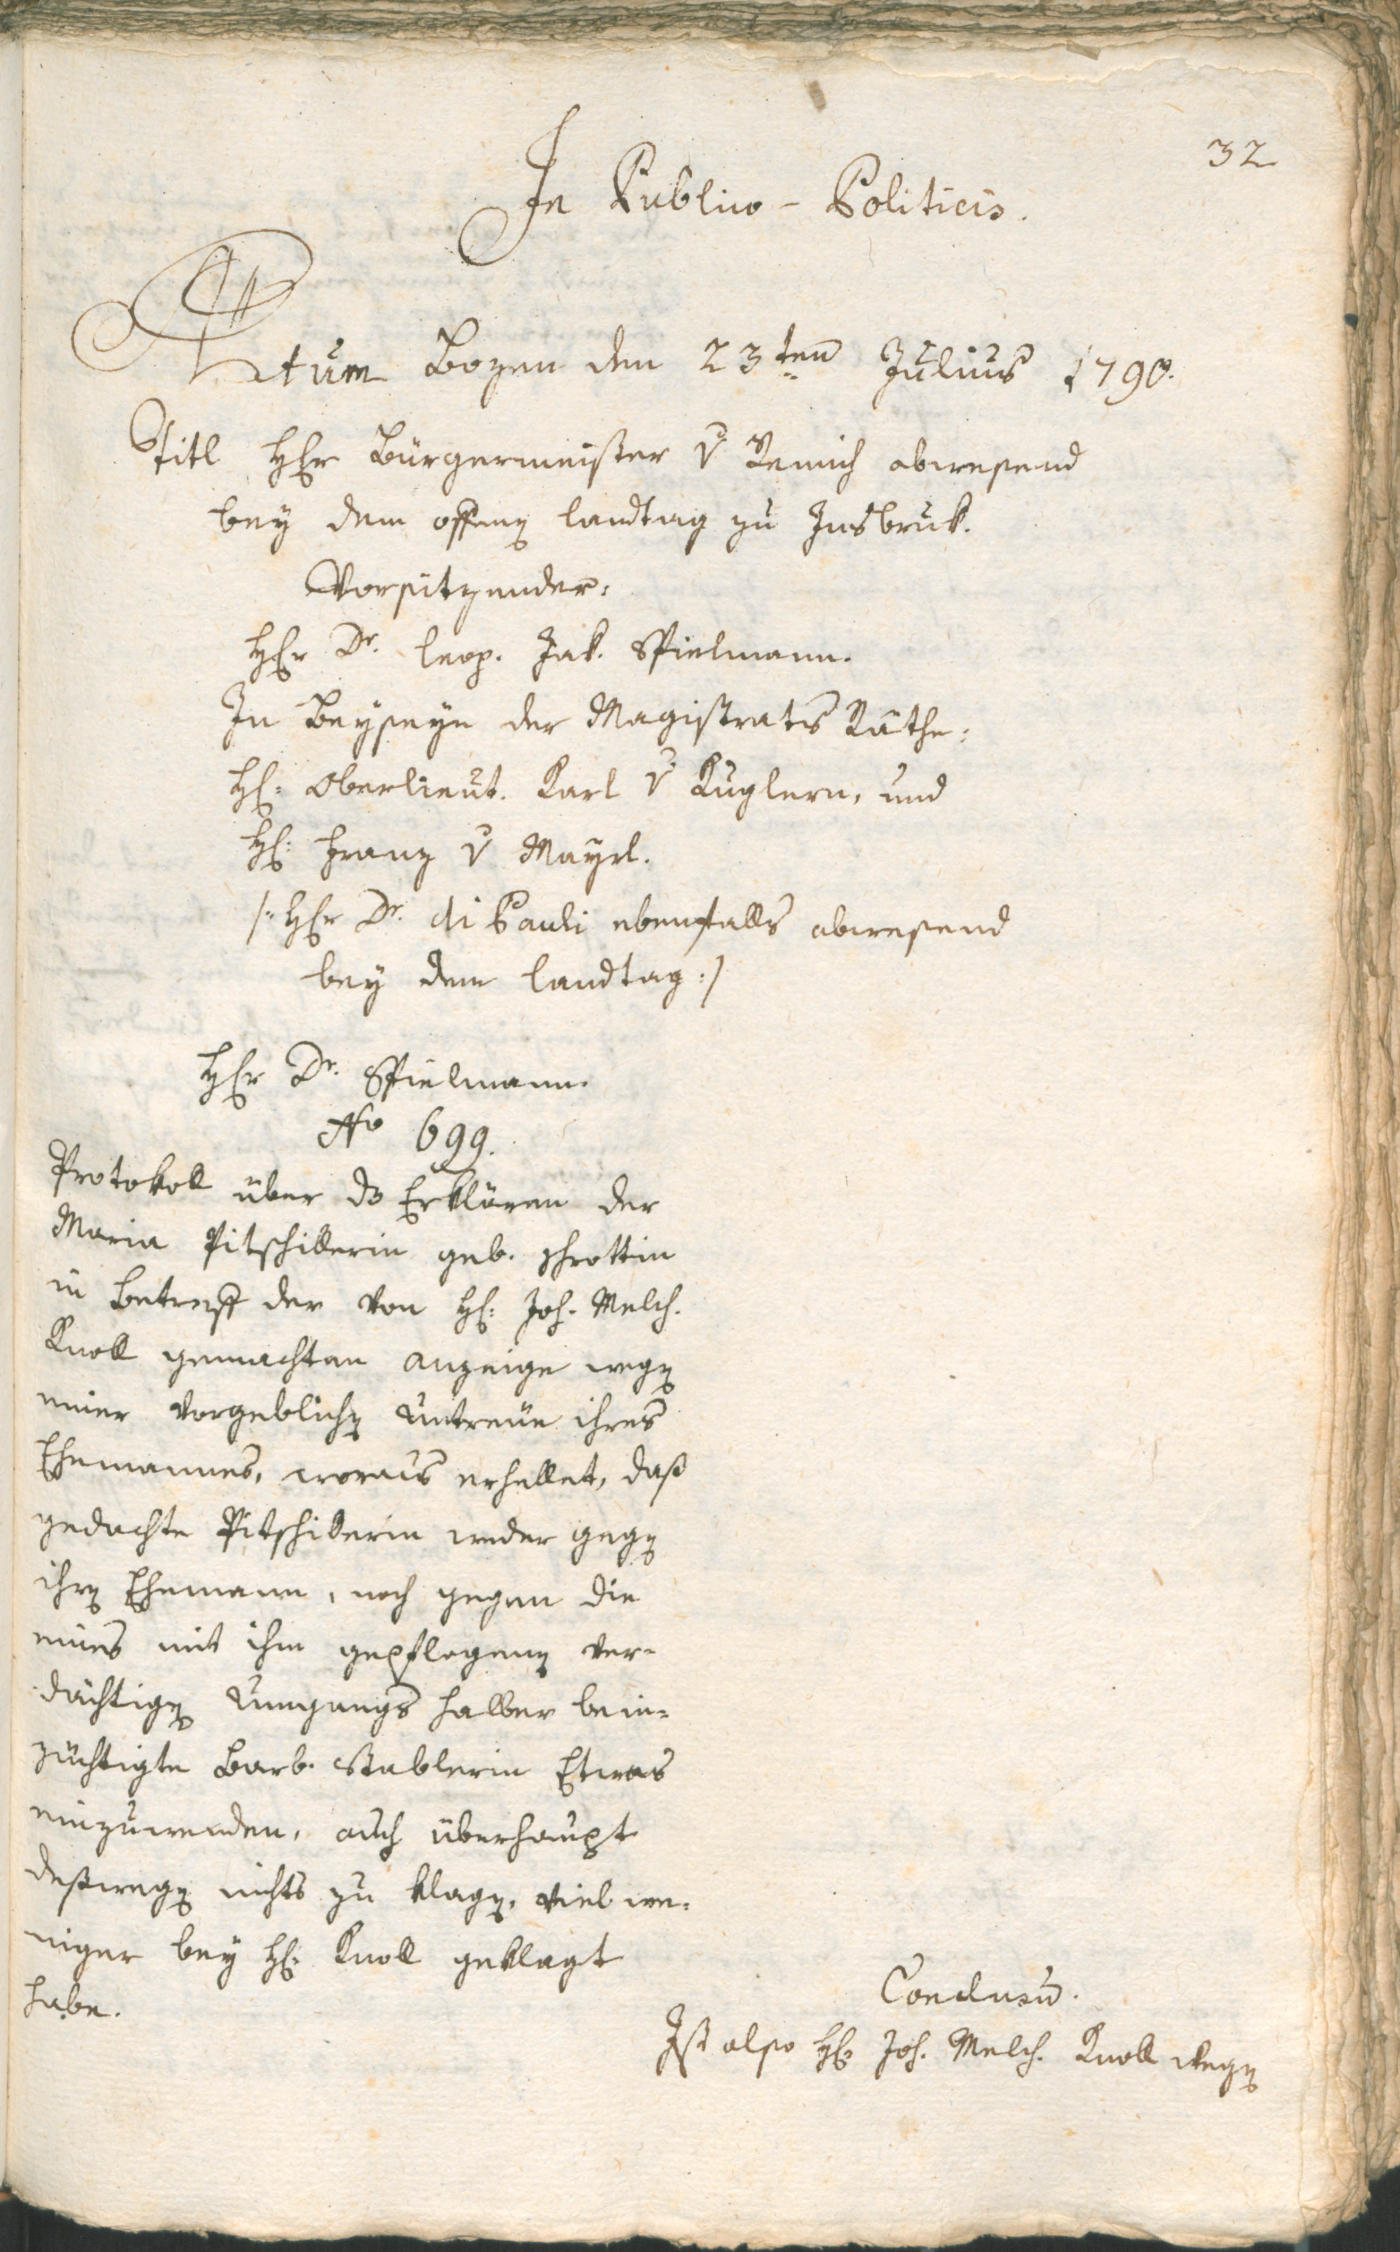 32
In Publico-Politicis.
Actum Bozen den 23ten Julius 1790.
Titl HEr Bürgermeister v Remich abwesend
bey dem offenen landtag zu Insbruk.
Vorsitzender:
HEr Dr. leop. Jak. Spielmann.
In Beyseyn der Magistrats Räthe:
H: Oberlieut. Karl v Kuglern, und
H: Franz v Mayrl.
/: HEr Dr. di Pauli ebenfalls abwesend
bey dem landtag :/
HEr Dr. Spielmann.
No 699.
Protokoll über ds Erklären der
Maria Pitschillerin geb. Schrottin
in Betreff der von H: Joh. Melch.
Knoll gemachten anzeige wegen
einer vorgeblichen Untreüe ihres
Ehemannes, woraus erhellet, daß
gedachte Pitschillerin weder gegen
ihren Ehemann, noch gegen die
eines mit ihm gepflogenen ver-
dächtigen Umgangs halber bein-
züchtigte Barb. Stablerin Etwas
einzuwenden, auch überhaupt
deßwegen nichts zu klagen, viel we-
niger bey H: Knoll geklagt
habe.
Conclusum.
Ist also H: Joh. Melch. Knoll wegen